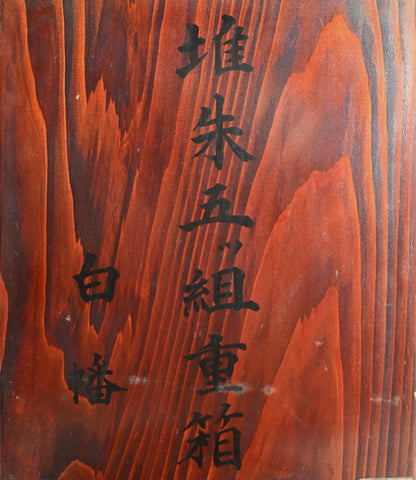 堆朱五ッ組重箱
白幡